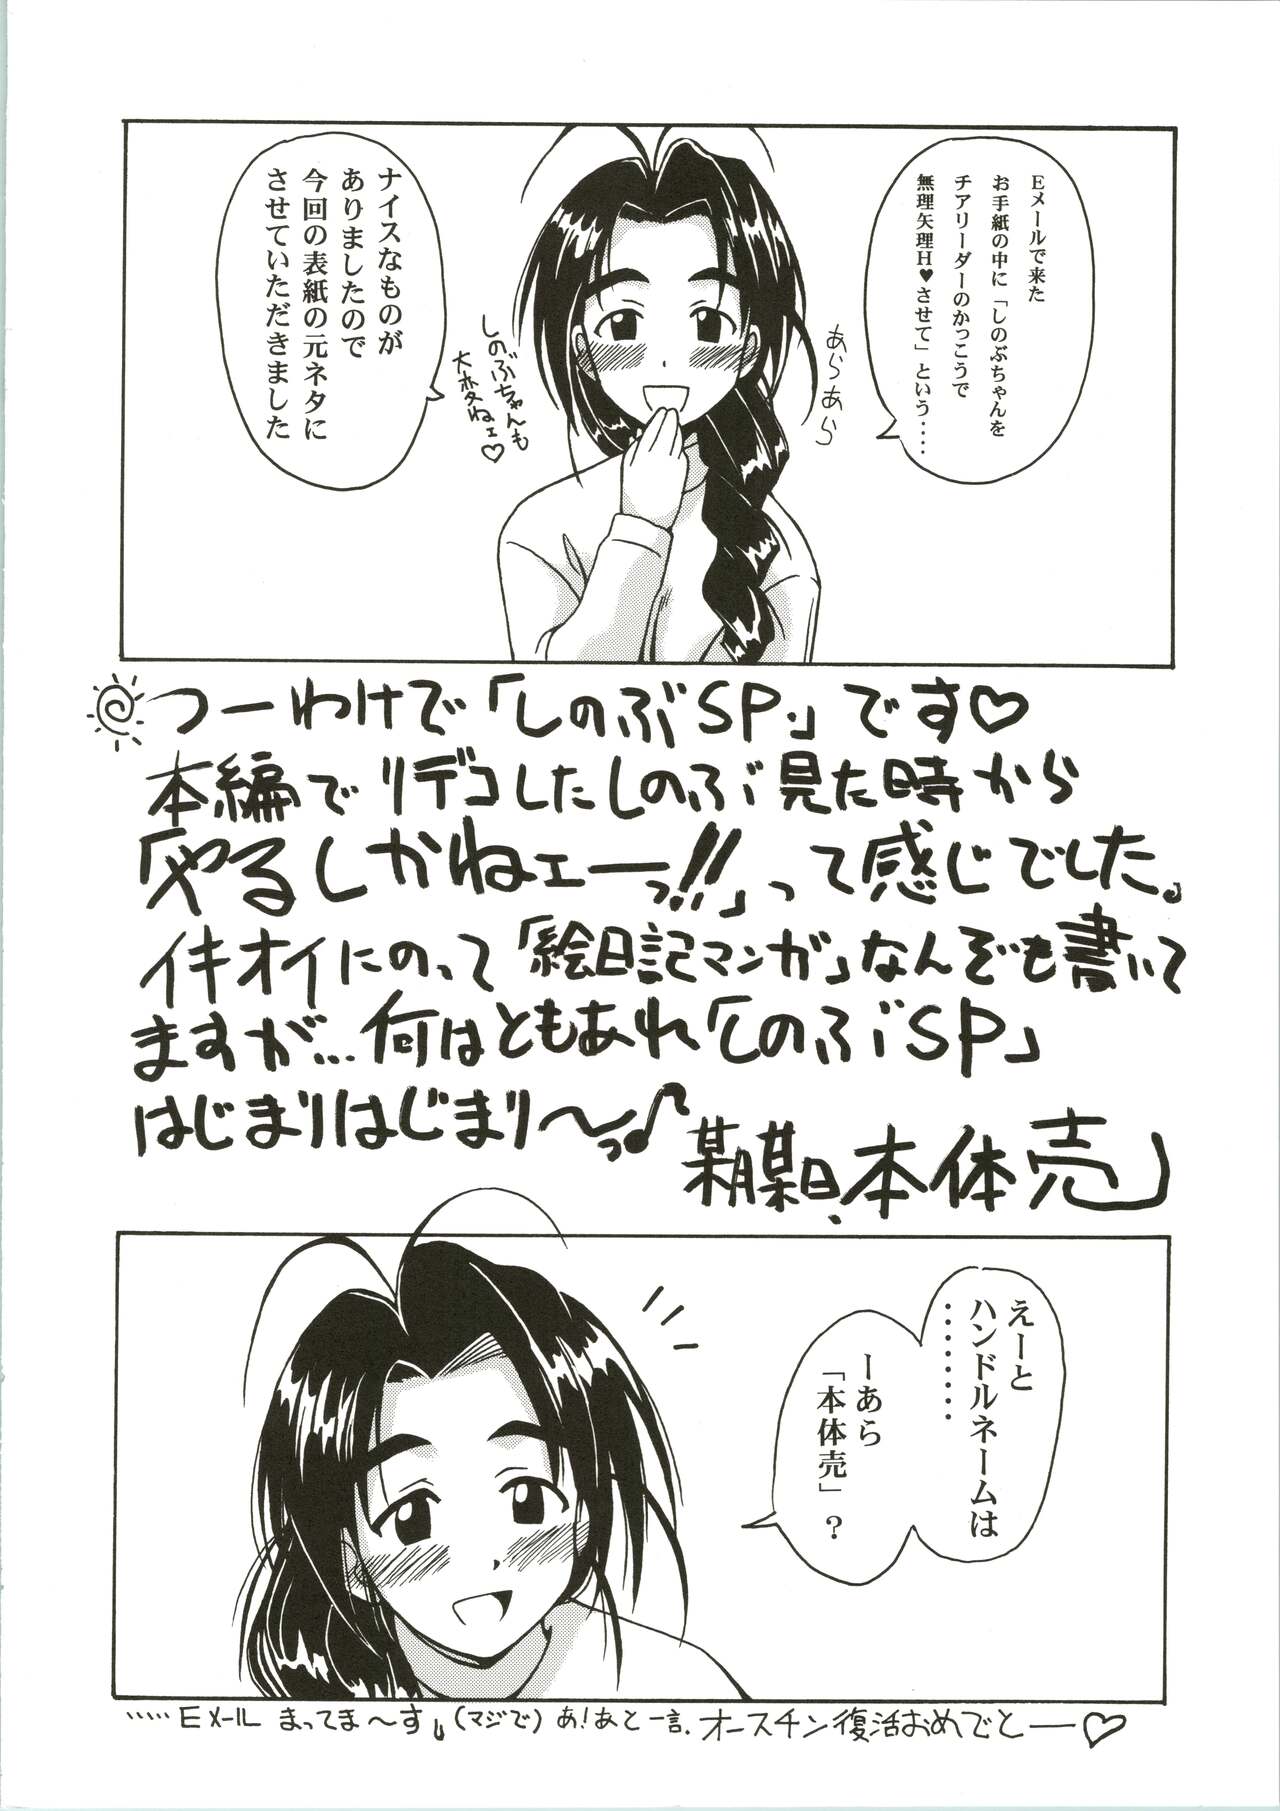 Eメールで来た
お手紙の中に「しのぶちゃんを
チアリーダーのかっこうで
無理矢理H♥させて」という‥‥
あらあら
ナイスなものが
ありましたので
今回の表紙の元ネタに
させていただきました
しのぶちゃんも
大変ねェ♡
つーわけで「しのぶSP.」です♡
本編でリデコしたしのぶ見た時から
「やるしかねェーっ!!」って感じでした。
イキオイにのって「絵日記マンガ」なんぞも書いて
ますが…何はともあれ「しのぶSP」
はじまりはじまり〜っ♪
某月某日、本体売
えーと
ハンドルネームは
・・・・・・・・
ーあら
「本体売」?
……EメールまってまーすI(マジで)あ!あと一言.オースチン復活おめでとー♡